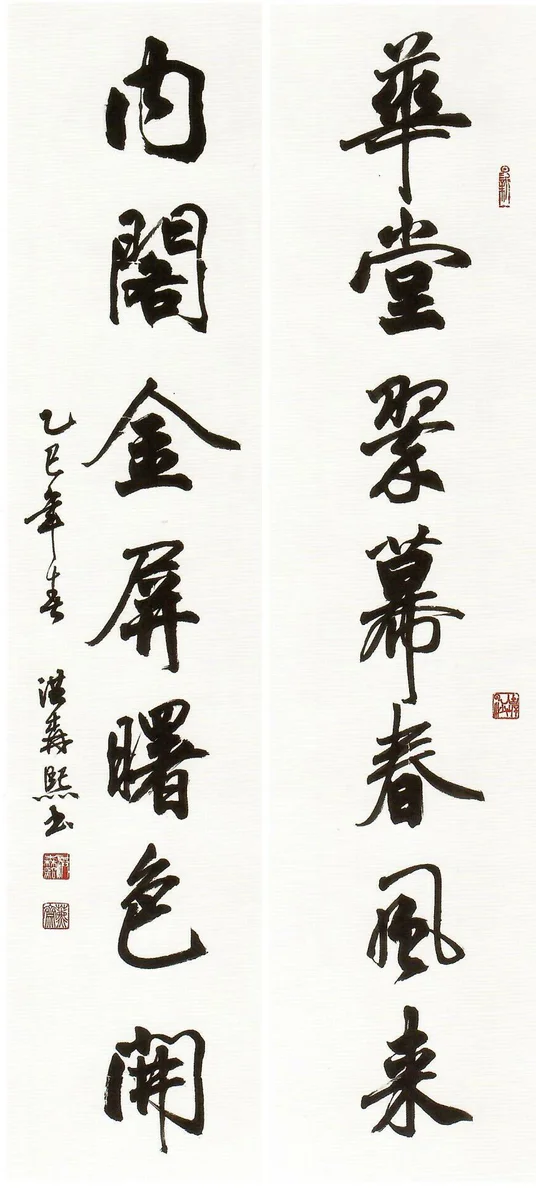 華堂翠幕春風来
内閣金屏曙色開
乙巳年春 洪森熙书